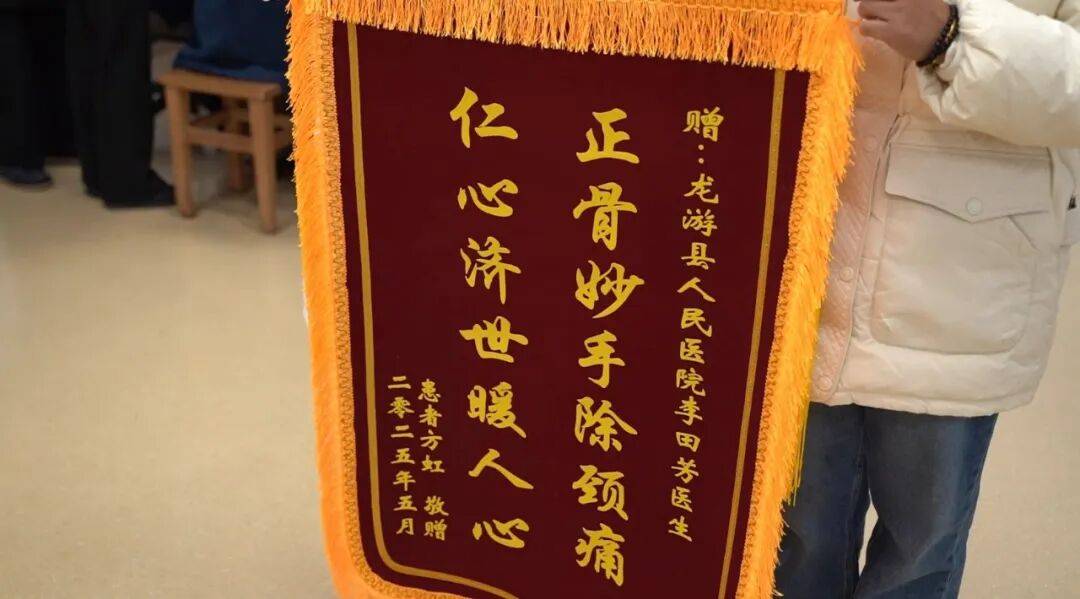 赠：龙游县人民医院李田芳医生
正骨妙手除颈痛
仁心济世暖人心
患者方虹 敬赠
二零二五年五月